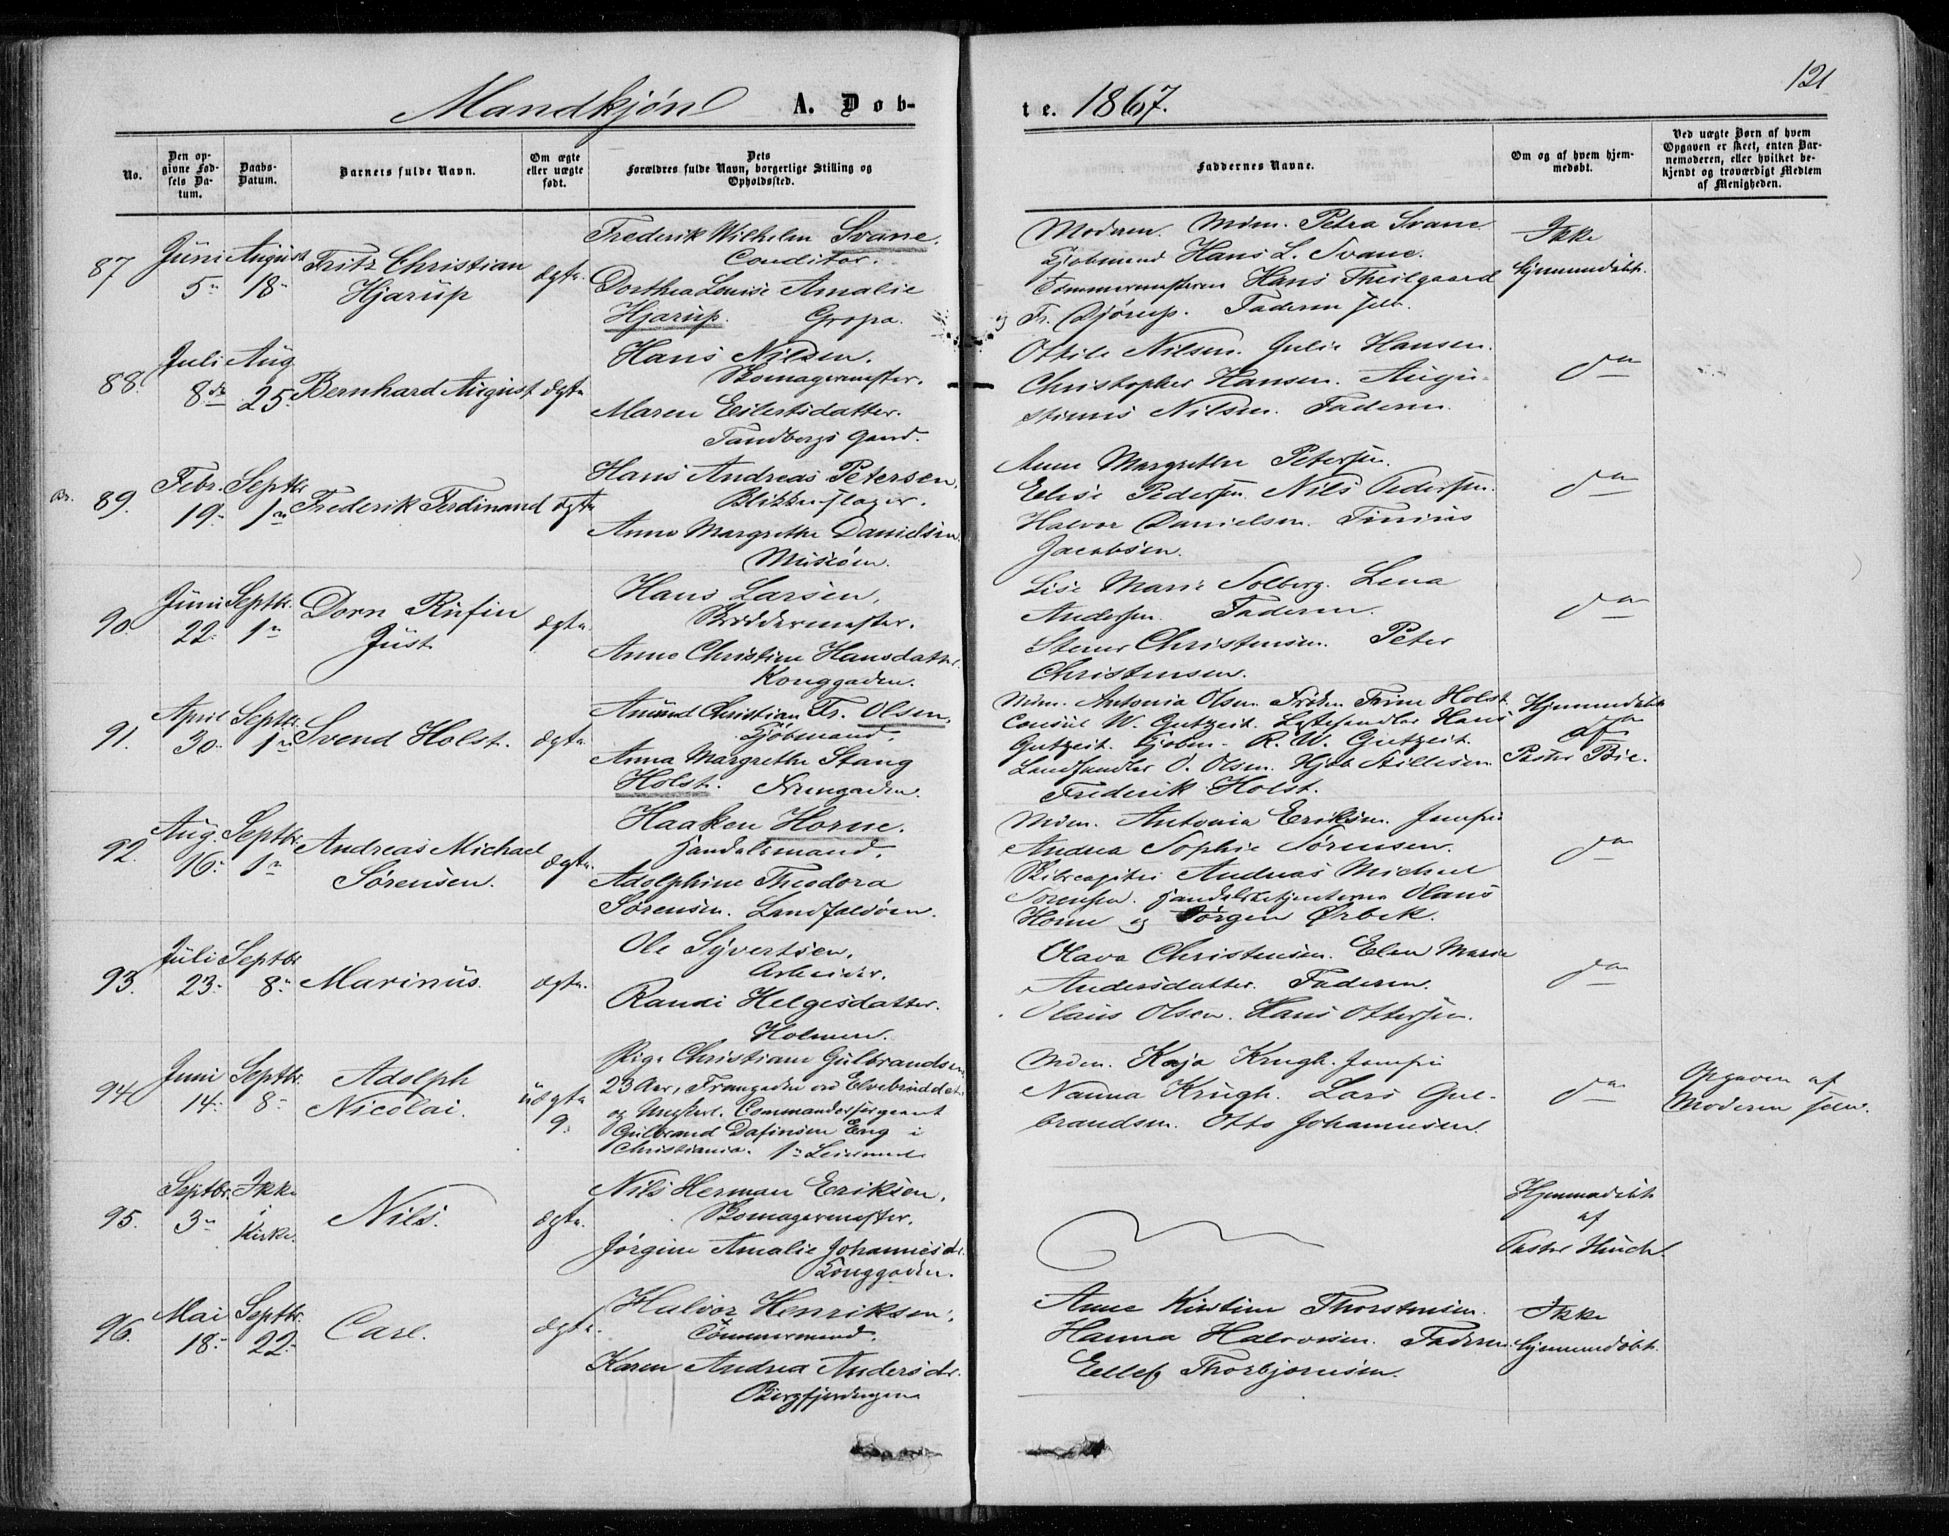 121
Mandkjøn A. Døb-
te. 1867.
No.
Den op-
givne Fød-
sels Da-
tum.
Daabs-
Datum.
Barnets fulde Navn.
Om ægte
eller uægte
født.
Dets
Forældres fulde Navn, borgerlige Stilling og
Opholdssted.
Faddernes Navne.
Om og af hvem hjem-
medøbt.
Ved uægte Børn af hvem
Opgaven er skeet, enten Bar-
nemoderen, eller hvilket be-
kjendt og troværdigt Medlem
af Menigheden.
87
Juni
5
August
18
Fritz Christian
Hjarup
ægte
Frederik Wilhelm Svane.
Conditor.
Dorthea Louise Amalie
Hjarup.
Moderen. Mdm. Petra Svane
Kjøbmend Hans L. Svane.
Tømmermesteren Hans Theilgaard
Faderen selv.
Ikke
hjemmedøbt.
88.
Juli
8de
Aug
25
Bernhard August
ægte
Hans Nilsen.
Skomagermester.
Maren Eilertsdatter.
Tandbergs Gaard.
Ottile Nilsen. Julie Hansen.
Christopher Hansen. Augu-
stinus Nilsen. Faderen
do
89.
Febr.
19
Septbr
1
Frederik Ferdinand
ægte
Hans Andreas Petersen.
Blikkenslager.
Anne Margrethe Danielsen
Anne Margrethe Petersen.
Elise Pedersen. Nils Pedersen.
Halvor Danielsen. Tinius
Jacobsen.
do
90.
Juni
22
Septbr.
1
Dorn Rufin
Just
ægte.
Hans Larsen.
Skræddermester.
Anne Christine Hansdatter.
Konggaden.
Lise Marie Solberg. Lena
Andersen. Faderen.
Stener Christensen. Peter
Christensen.
do
91.
April
30
Septbr.
1
Svend Holst.
ægte
Amund Christian Fr. Olsen.
Kjøbmand.
Anna Margrethe Stang
Holst.
Mdm. Antonia Olsen. Frøken Trine Holst.
Consul W. Gutzeit. Hans
Gutzeit. Kjøbm. R. W. Gutzeit.
Landhandler O. Olsen.
Frederik Holst.
Hjemmedøbt
af
Pastor Bie.
92.
Aug.
16
Septbr
1
Andreas Michael
Sørensen.
ægte.
Haaken Horne.
Handelsmand.
Adolphine Theodora
Sørensen. Landfaldøen.
Mdm. Antonia Eriksen. Jomfru
Andrea Sophie Sørensen.
Skibscapitain Andreas Michael
Sørensen. Handelsbetjenterne Olaus
Horne og Jørgen Ørbek.
do
93.
Juli
23
Septbr
8
Marinus.
ægte.
Ole Syvertsen.
Arbeider.
Randi Helgesdatter.
Holmen.
Olava Christensen. Elen Marie
Andersdatter. Faderen.
Olaus Olsen. Hans Ottersen.
do
94
Juni
14
Septbr.
8
Adolph
Nicolai.
uægte
9.
Pige Christiane Gulbrandsen
23 Aar, Trangaden ved Elvebruddet
og Ungkarl. Commandersergeant
Gulbrand Dafinsen Eng i
Christiania. 1ste Leiermaal
Mdm. Kaja Krugh. Jomfru
Nanna Krugh. Lars Gul-
brandsen. Otto Johannesen.
do
Opgaven af
Moderen selv.
95.
Septbr.
3
Ikke
i
Kirke.
Nils.
ægte.
Nils Herman Eriksen.
Skomagermester.
Jørgine Amalie Johannesdr.
Konggaden.
Hjemmedøbt
af
Pastor Huuch
96.
Mai
18
Septbr.
22
Carl.
ægte.
Halvor Henriksen.
Tømmermand.
Karen Andrea Andersdr.
Bergfjerdingen
Anne Kirstine Thorstensen.
Hanna Halvorsen. Faderen.
Ellef Thorbjørnsen.
Ikke
hjemmedøbt.